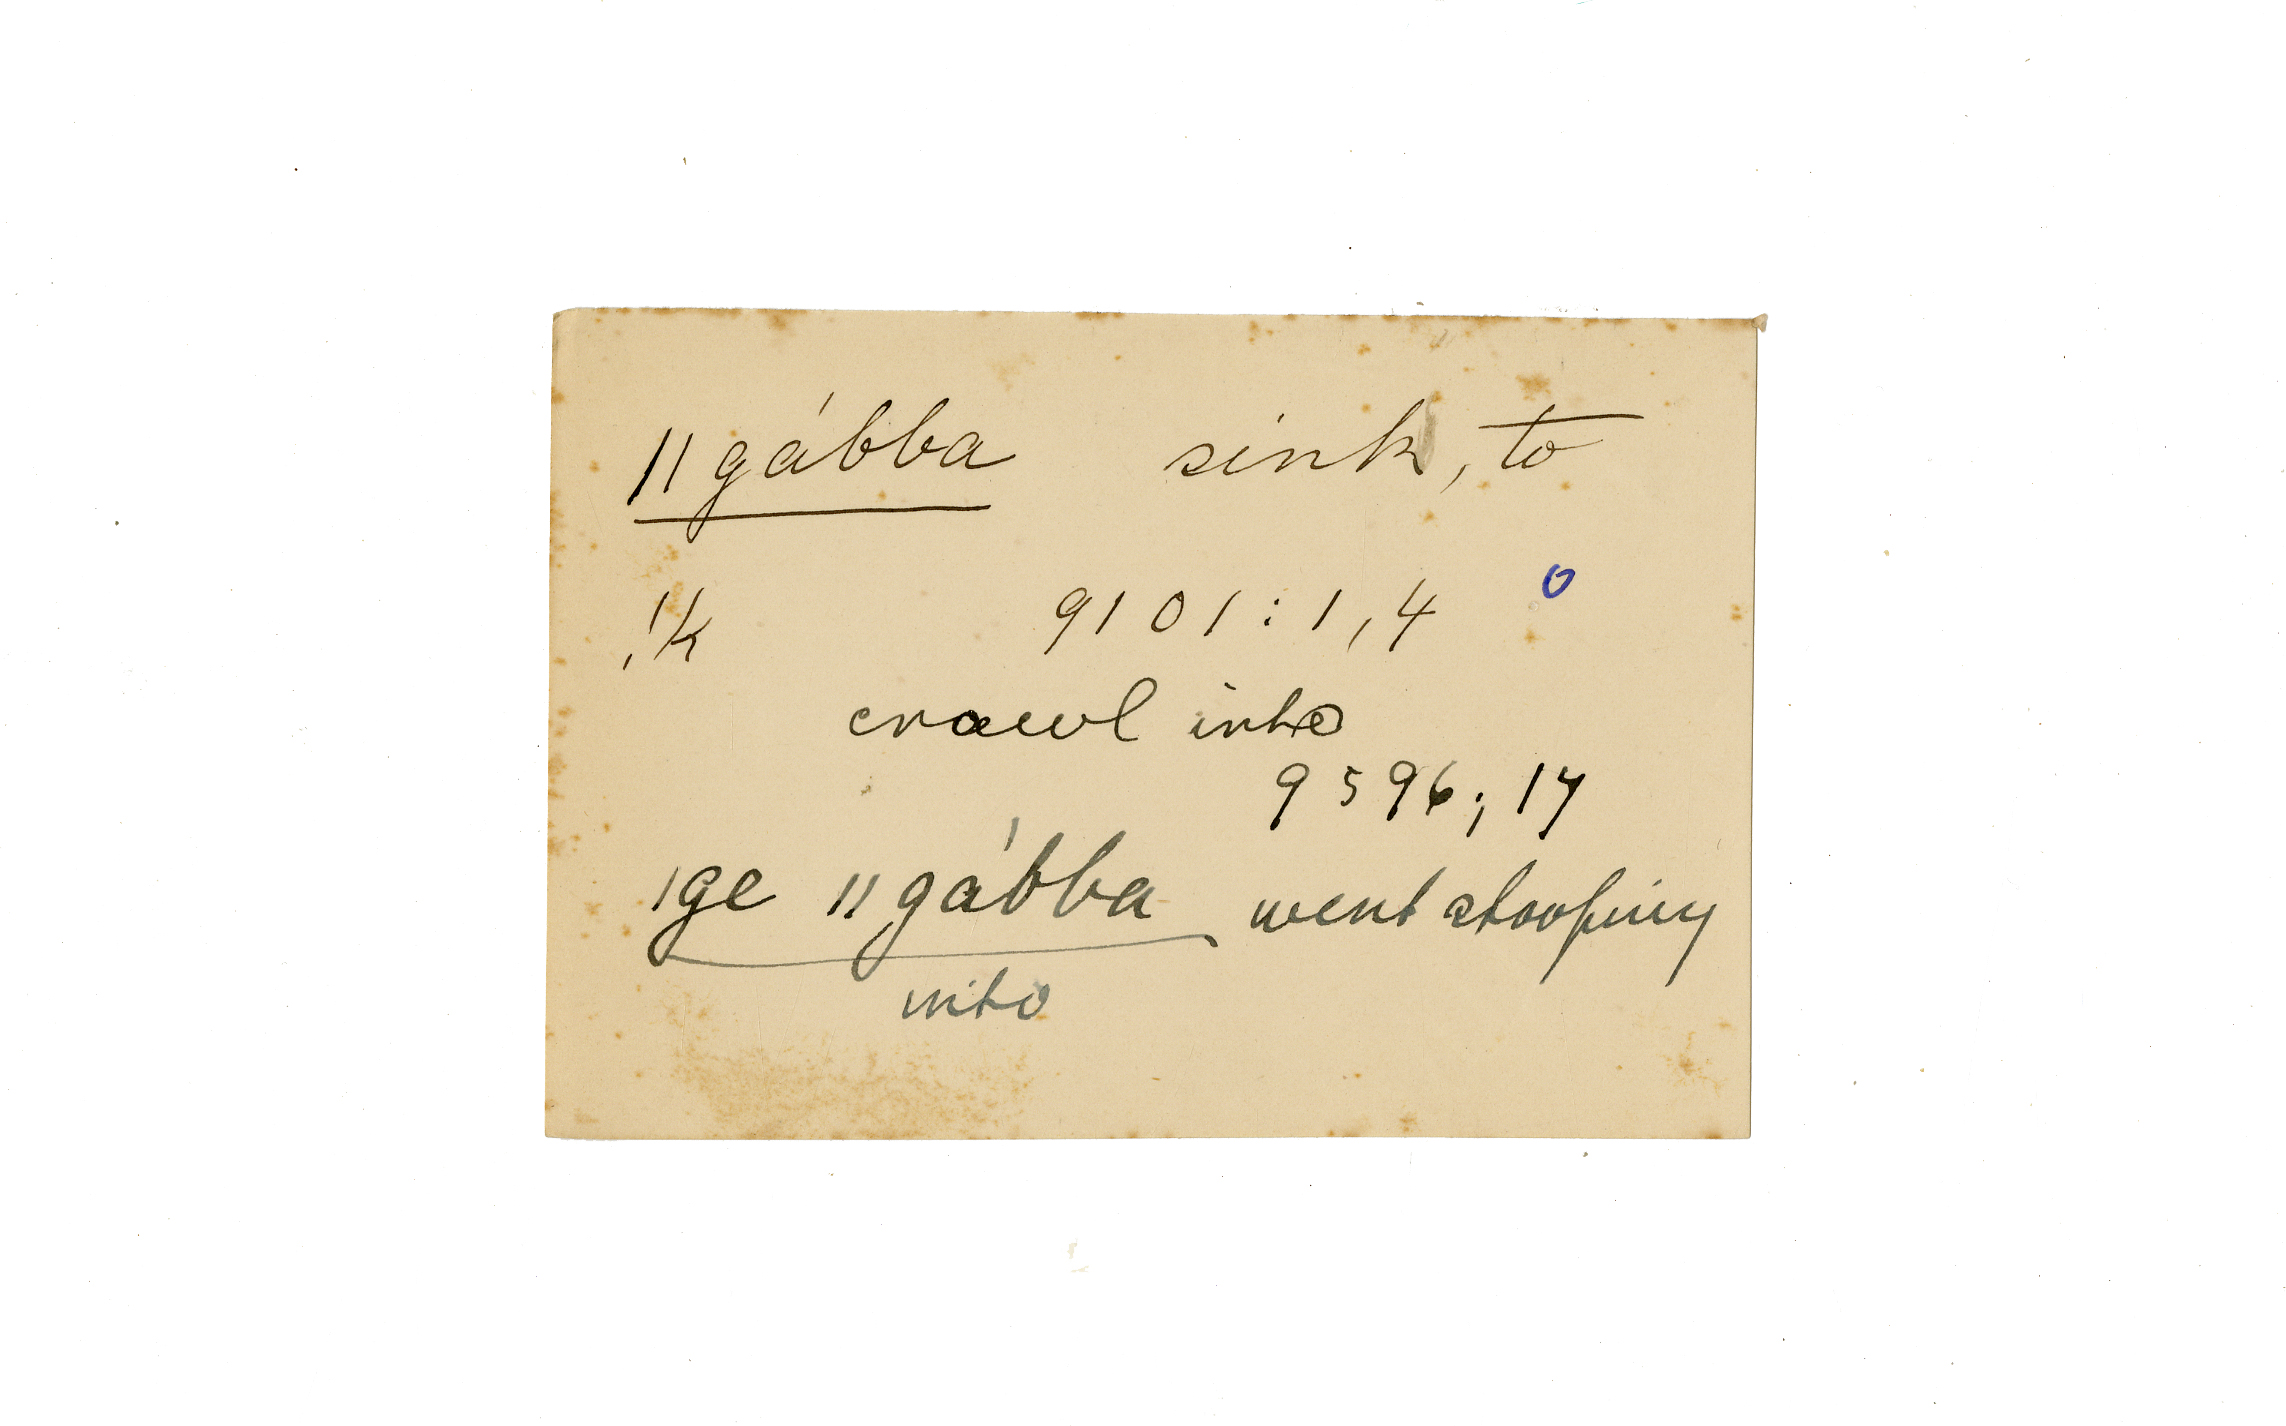 ||gábba sink, to
!k 9101:1,4 o
crawl into
9596; 17
|ge ||gábba went stooping
into